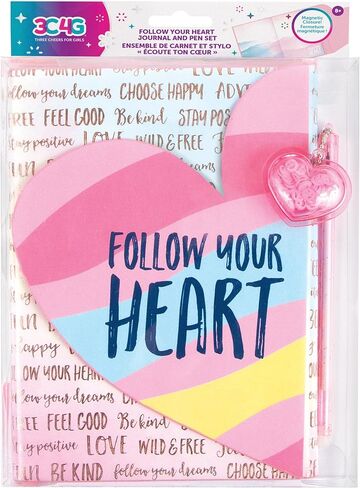 3C4G
THREE CHEERS FOR GIRLS
FOLLOW YOUR HEART
JOURNAL AND PEN SET
ENSEMBLE DE CARNET ET STYLO
« ÉCOUTE TON CŒUR »
Magnetic
Closure!
Fermeture
magnétique!
8+
LOVE WILD
follow your dreams CHOOSE HAPPY ADV
FREE FEEL GOOD Be kind STAY POS
stay positive LOVE WILD & FREE
FOLLOW YOUR
HEART
happy
FOLLOW YOUR HEART
FREE FEEL GOOD Be kind
stay positive LOVE WILD & FREE feel
BE KIND follow your dreams CHOOSE